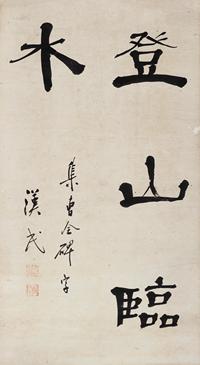 登山臨
水
集曹全碑字
漢民